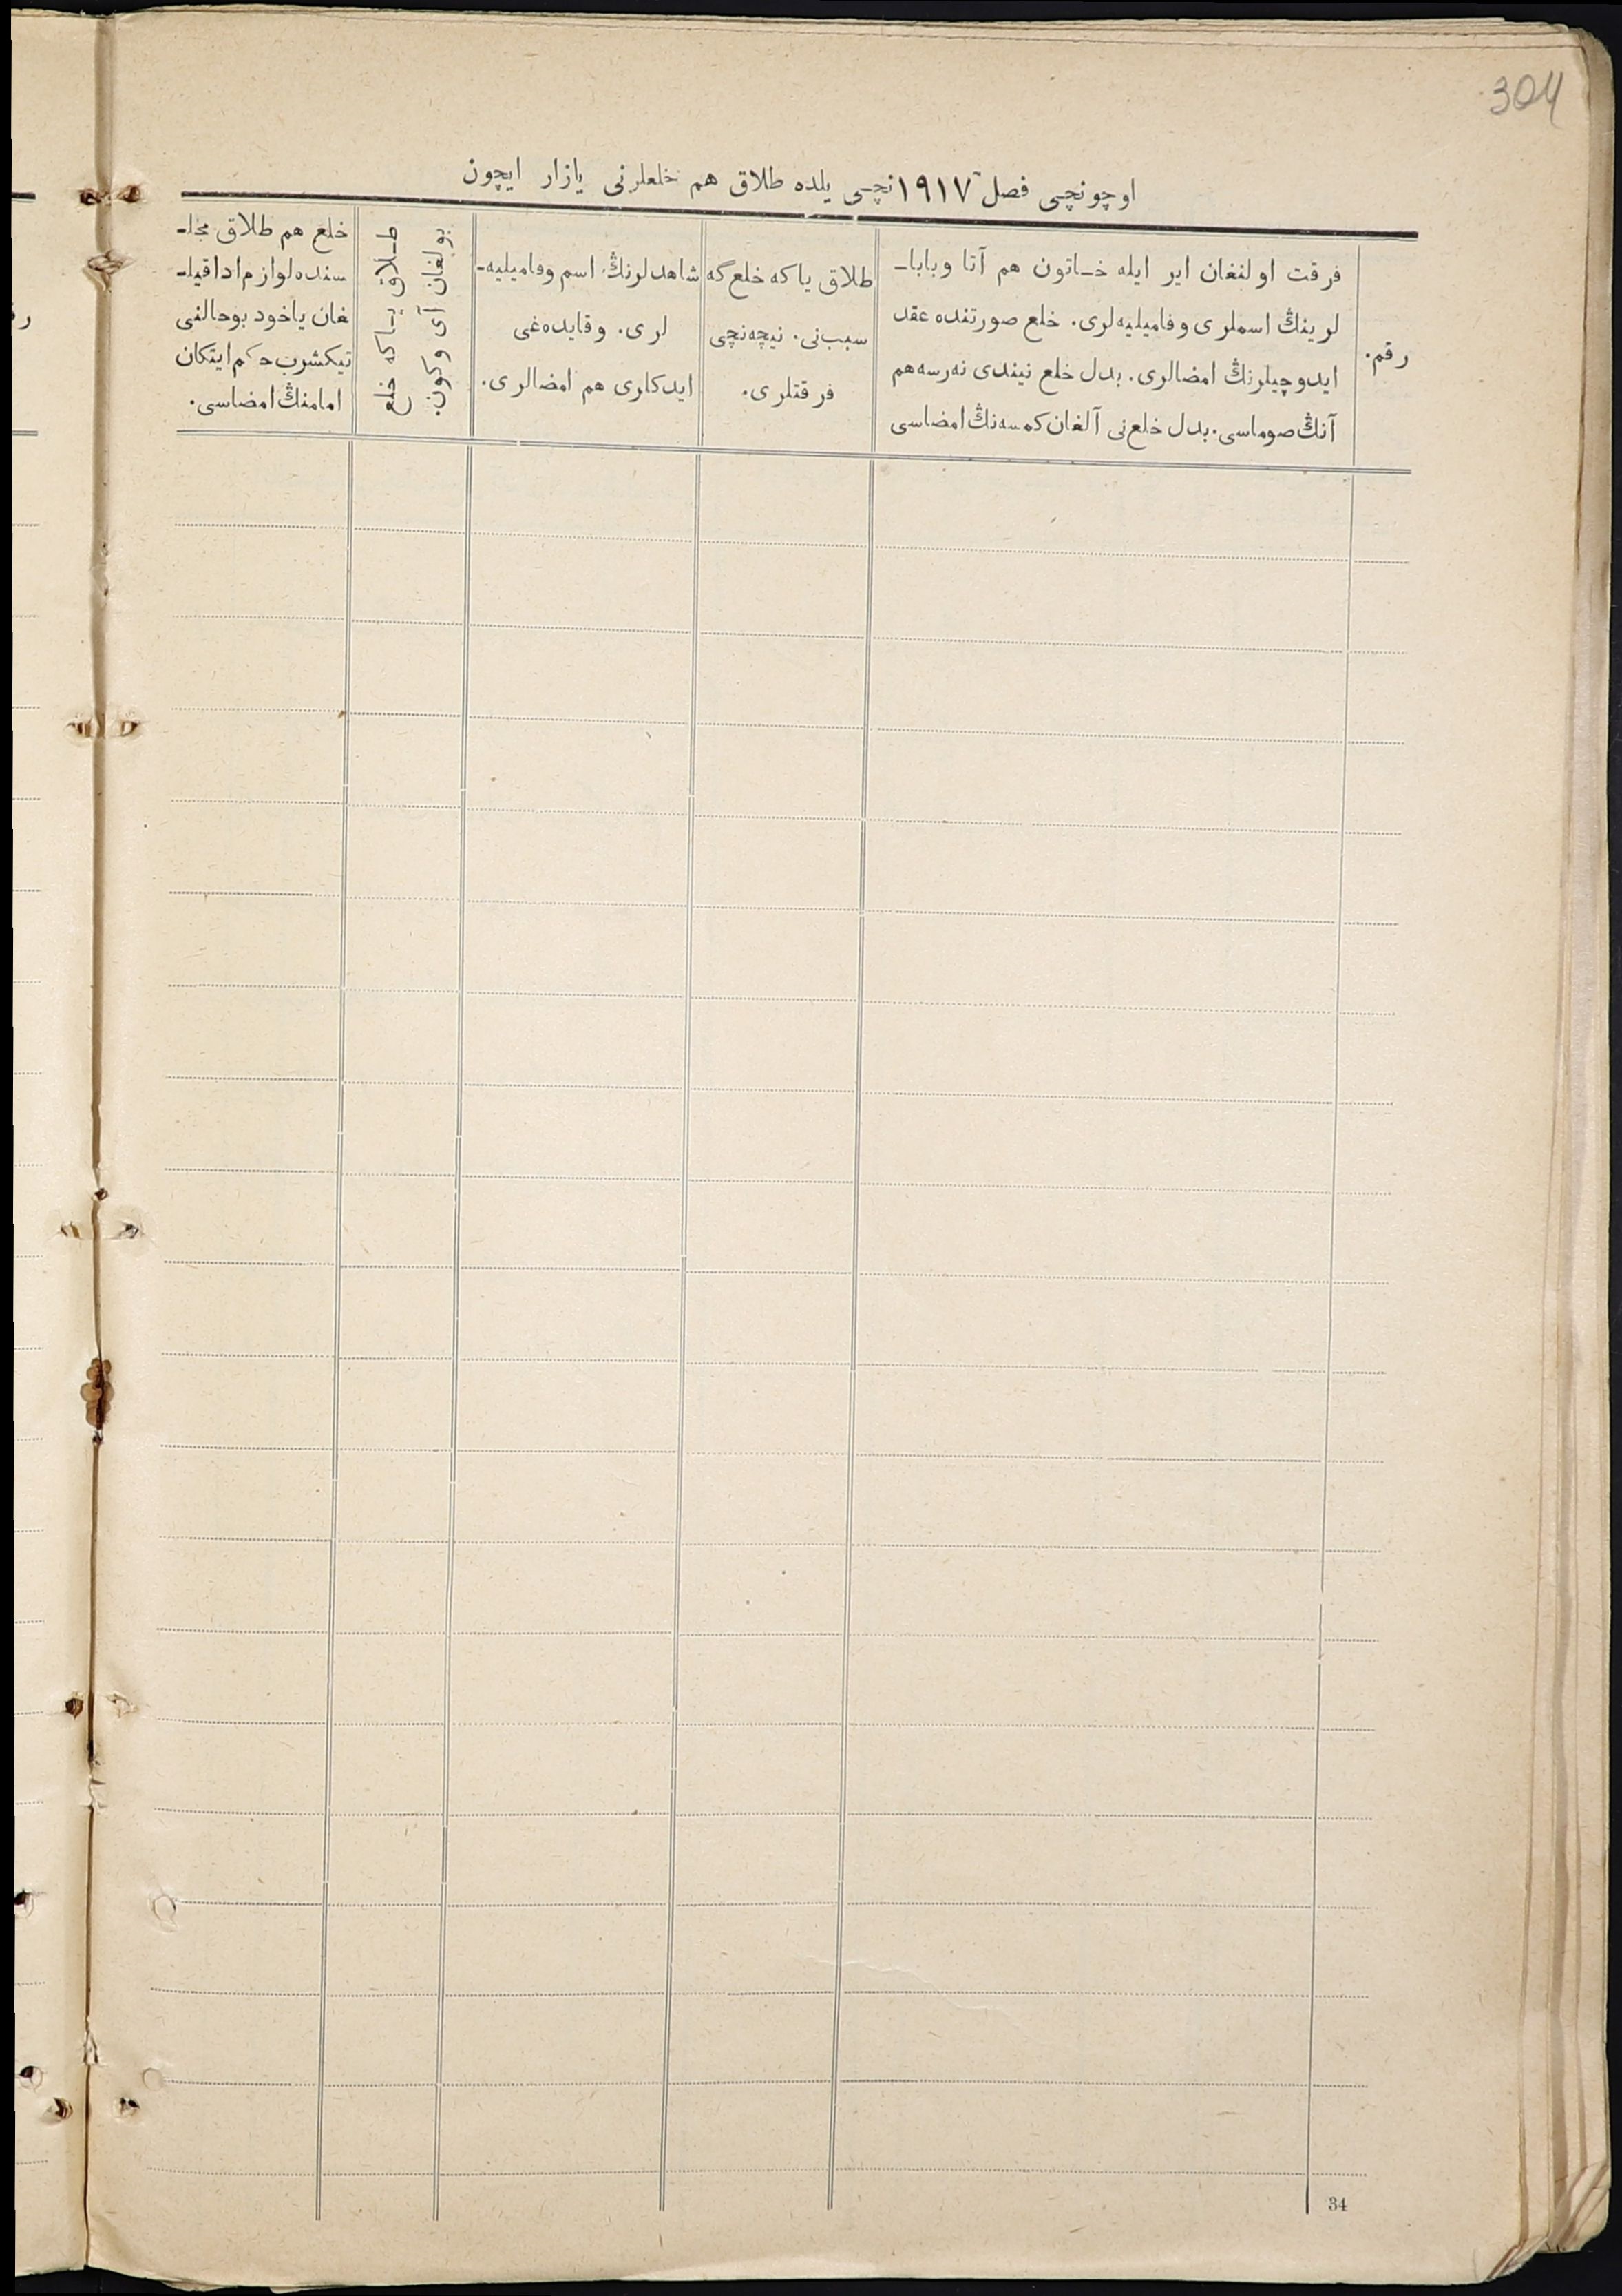 304
اوچونچی فصل ١٩١٧ نچی یلده طلاق هم خلعلرنی یازار ایچون
رقم.
فرقت اولنغان ایر ایله خـاتون هم آتا وباباـ
لرینڭ اسملری وفامیلیه‌لری. خلع صورتنده عقد
ایدوچیلرنڭ امضالری. بدل خلع نیندی نه‌رسه هم
آنڭ صوماسی. بدل خلع‌نی آلغان کمسه‌نڭ امضاسی
طلاق یا که خلع گه
سبب‌نی. نیچه‌نچی
فرقتلری.
شاهدلرنڭ اسم وفامیلیه‌ـ
لری. وقایده‌غی
ایدکلری هم امضالری.
طـلاق یـاکه خلع
بولغان آی وکون.
خلع هم طلاق مجلـ
سنده لوازم ادا قیلـ
غان یاخود بوحالنی
تیکشرب حکم ایتکان
امامنڭ امضاسی.
34